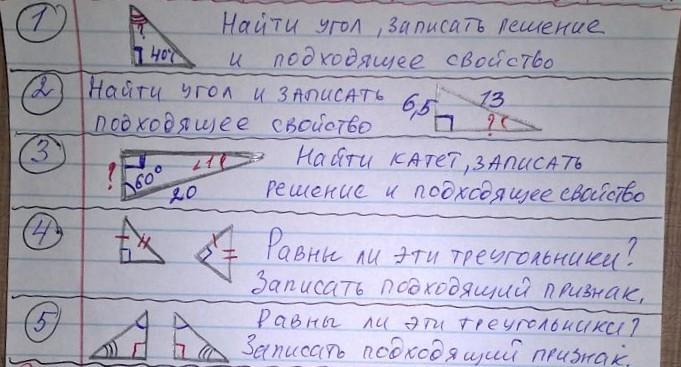 1 ? 40° Найти угол, записать решение
и подходящее свойство
2 Найти угол и записать 6,5 13
подходящее свойство ?
3 ? 60° ∠1 20 Найти катет, записать
решение и подходящее свойство
4 Равны ли эти треугольники?
Записать подходящий признак.
5 Равны ли эти треугольники?
Записать подходящий признак.